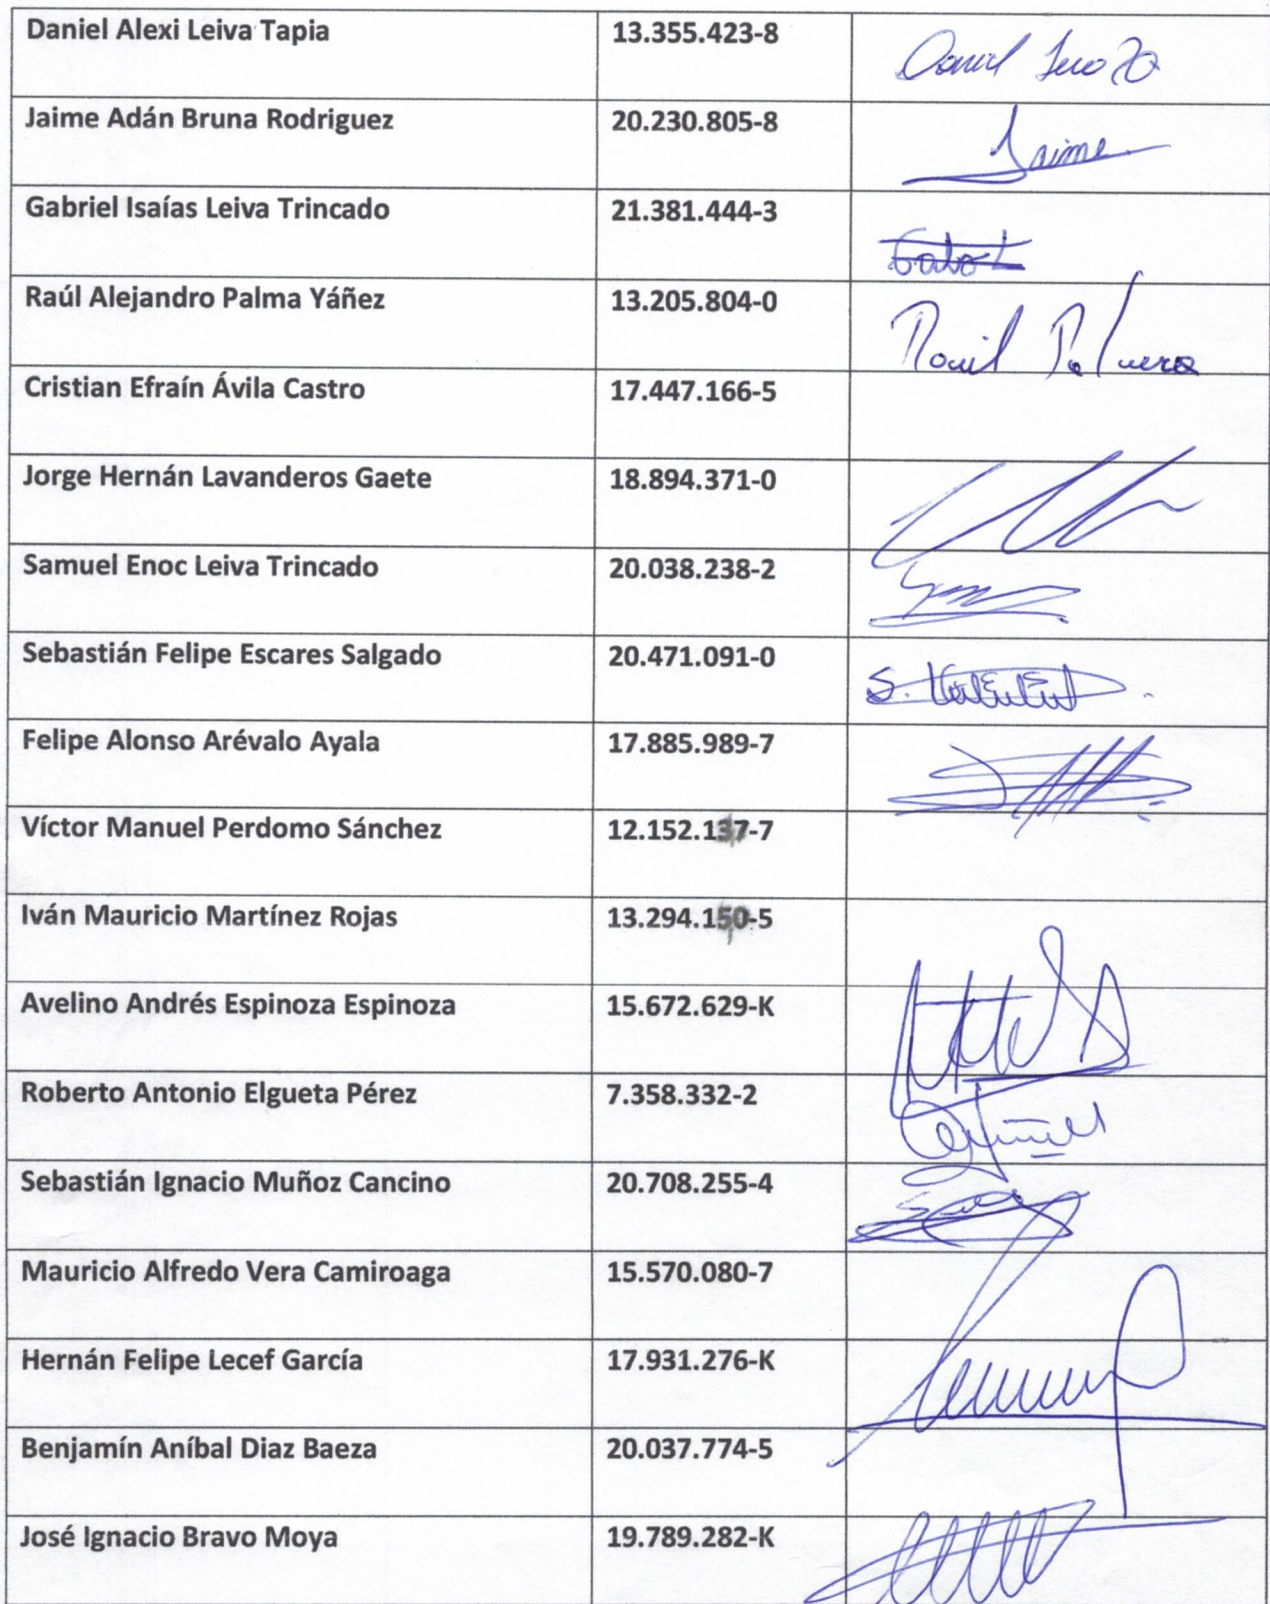 Daniel Alexi Leiva Tapia 13.355.423-8
Jaime Adán Bruna Rodriguez 20.230.805-8 Jaime
Gabriel Isaías Leiva Trincado 21.381.444-3
Raúl Alejandro Palma Yáñez 13.205.804-0
Cristian Efraín Ávila Castro 17.447.166-5
Jorge Hernán Lavanderos Gaete 18.894.371-0
Samuel Enoc Leiva Trincado 20.038.238-2
Sebastián Felipe Escares Salgado 20.471.091-0
Felipe Alonso Arévalo Ayala 17.885.989-7
Víctor Manuel Perdomo Sánchez 12.152.137-7
Iván Mauricio Martínez Rojas 13.294.150-5
Avelino Andrés Espinoza Espinoza 15.672.629-K
Roberto Antonio Elgueta Pérez 7.358.332-2
Sebastián Ignacio Muñoz Cancino 20.708.255-4
Mauricio Alfredo Vera Camiroaga 15.570.080-7
Hernán Felipe Lecef García 17.931.276-K
Benjamín Aníbal Diaz Baeza 20.037.774-5
José Ignacio Bravo Moya 19.789.282-K